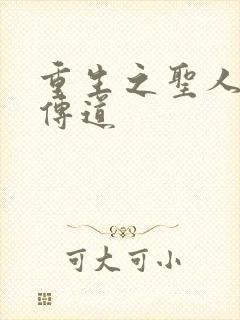 重生之聖人
傳道
可大可小